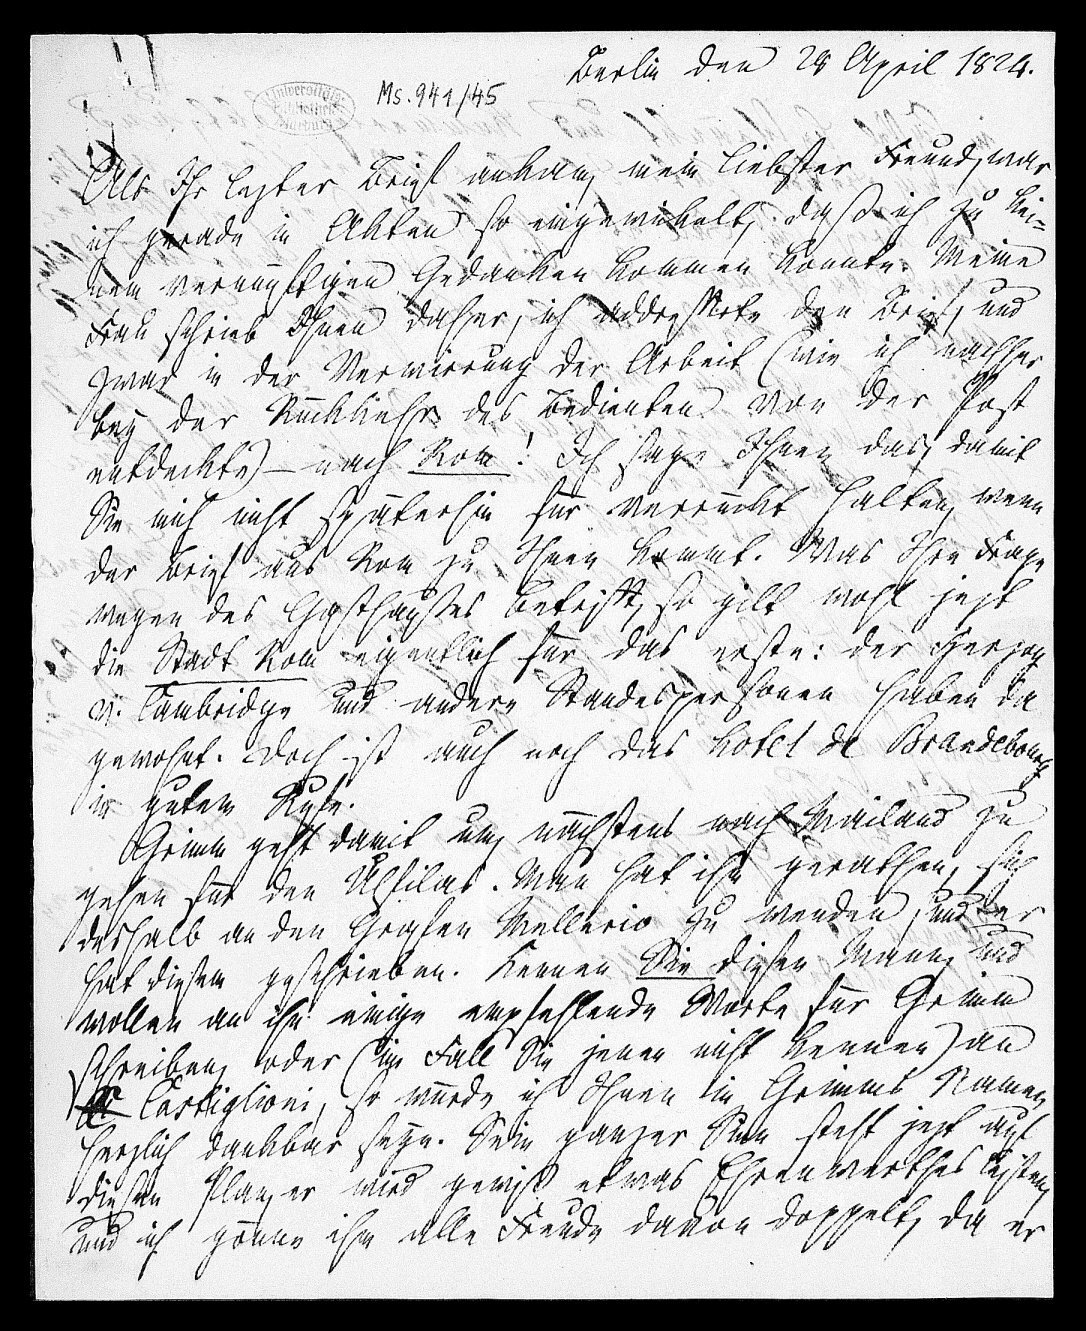 Berlin den 28 April 1824.
Ms. 941/45
Universitäts
Bibliothek
Marburg
Als Ihr lezter Brief ankam, mein liebster Freund, war
ich gerade in Akten so eingewickelt, daß ich zu kei-
nem vernünftigen Gedanken kommen konnte. Meine
Frau schrieb Ihnen daher, ich addressirte den Brief, und
zwar in der Verwirrung der Arbeit (wie ich nachher
bey der Rückkehr des Bedienten von der Post
entdeckte) – nach Rom! Ich sage Ihnen das, damit
Sie mich nicht späterhin für verrückt halten, wenn
der Brief aus Rom zu Ihnen kommt. Was Ihre Frage
wegen des Gasthauses betrifft, so gilt wohl jezt
die Stadt Rom eigentlich für das erste: der Herzog
v. Cambridge und andere Standespersonen haben da
gewohnt. Doch ist auch noch das Hotel de Brandebourg
in gutem Rufe.
Grimm geht damit um, nächstens nach Mailand zu
gehen für den Ulfilas. Man hat ihm gerathen, sich
deshalb an den Grafen Mellerio zu wenden, und er
hat diesem geschrieben. Kennen Sie diesen Mann, und
wollen an ihn einige empfehlende Worte für Grimm
schreiben, oder (im Fall Sie jenen nicht kennen) an
Castiglioni, so würde ich Ihnen in Grimms Namen
herzlich dankbar seyn. Sein ganzer Sinn steht jezt auf
diesen Plan, er wird gewiß etwas Ehrenwerthes leisten,
und ich gönne ihm alle Freude davon doppelt, da er